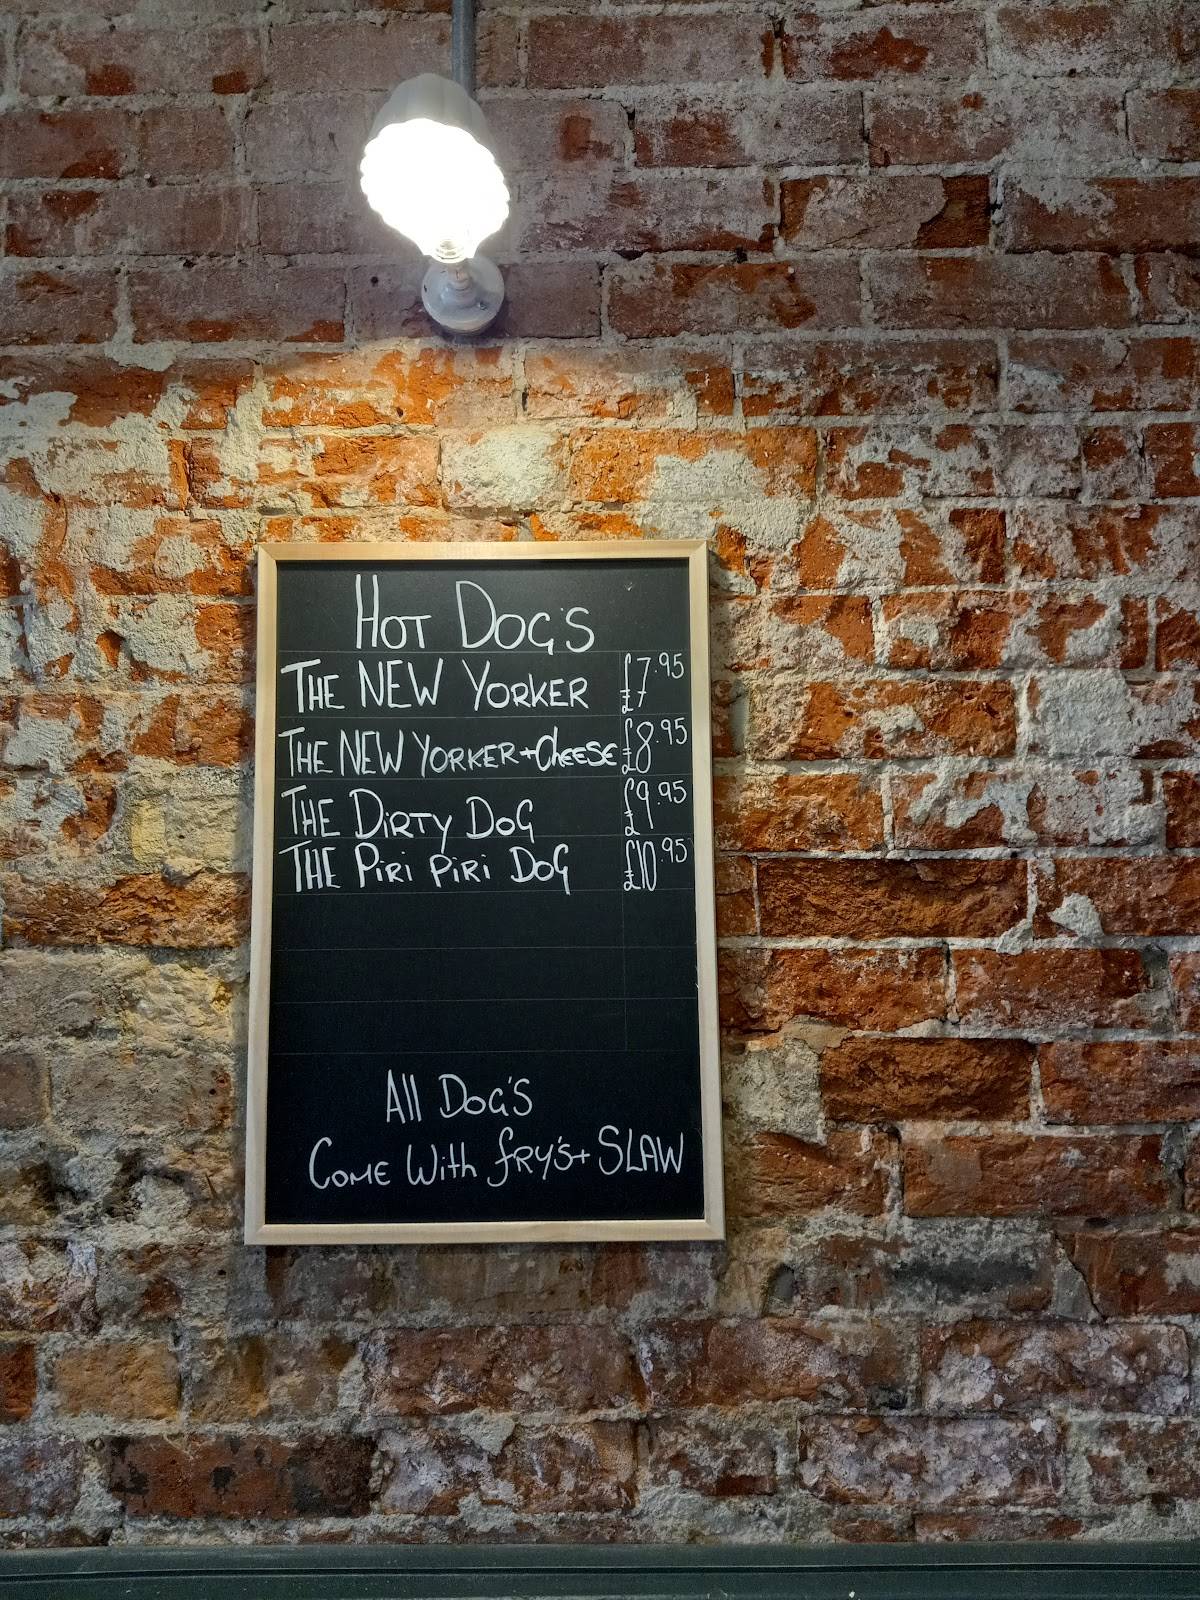 HOT DOG'S
THE NEW YORKER £7.95
THE NEW YORKER + CHEESE £8.95
THE DIRTY DOG £9.95
THE PIRI PIRI DOG £10.95
All DOG'S
COME With FRY'S + SLAW